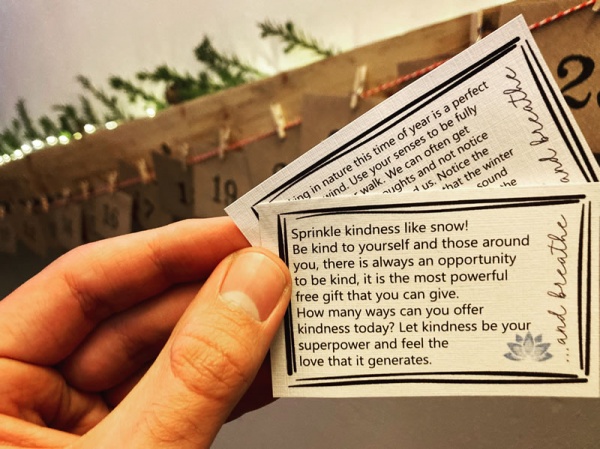 Sprinkle kindness like snow!
Be kind to yourself and those around
you, there is always an opportunity
to be kind, it is the most powerful
free gift that you can give.
How many ways can you offer
kindness today? Let kindness be your
superpower and feel the
love that it generates.
...and breathe
in nature this time of year is a perfect
Use your senses to be fully
walk. We can often get
and not notice
us. Notice the
that the winter
sound
the
and breathe
19
2